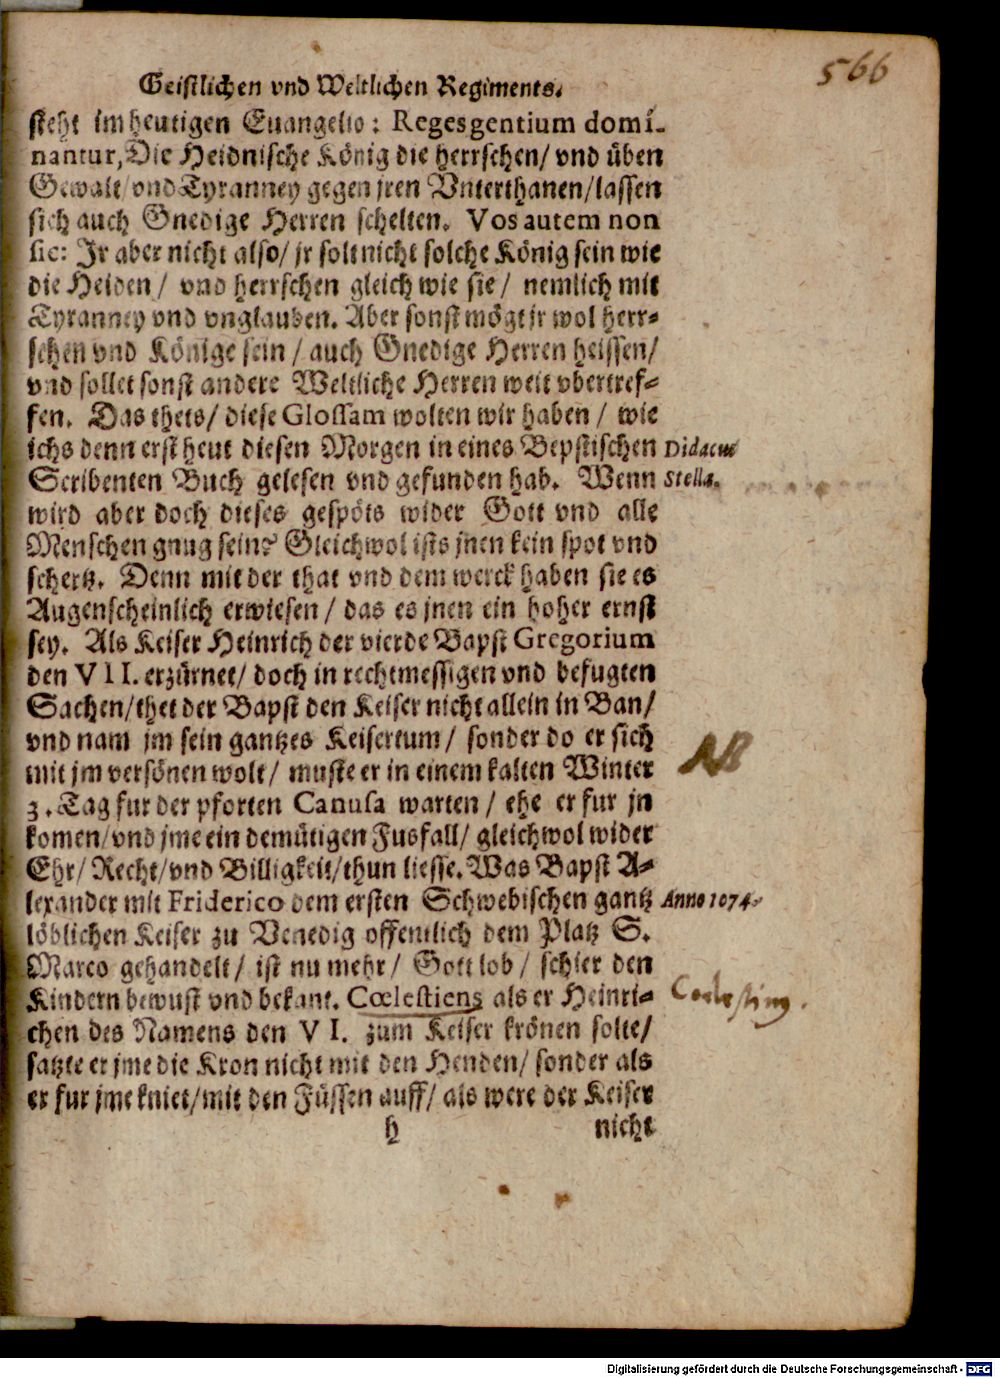 566
Geistlichen vnd Weltlichen Regiments.
steht im heutigen Euangelio: Reges gentium domi-
nantur, Die Heidnische König die herrschen/ vnd üben
Gewalt/ vnd Tyranney gegen jren Vnterthanen/ lassen
sich auch Gnedige Herren schelten. Vos autem non
sic: Jr aber nicht also/ jr solt nicht solche König sein wie
die Heiden/ vnd herrschen gleich wie sie/ nemlich mit
Tyranney vnd vnglauben. Aber sonst mögt jr wol herr-
schen vnd Könige sein/ auch Gnedige Herren heissen/
vnd sollet sonst andere Weltliche Herren weit vbertref-
fen. Das thets/ diese Glossam wolten wir haben/ wie
ichs denn erst heut diesen Morgen in eines Bepstischen
Didacus
Scribenten Buch gelesen vnd gefunden hab. Wenn
Stella.
wird aber doch dieses gespöts wider Gott vnd alle
Menschen gnug sein? Gleichwol ists jnen kein spot vnd
schertz. Denn mit der that vnd dem werck haben sie es
Augenscheinlich erwiesen/ das es jnen ein hoher ernst
sey. Als Keiser Heinrich der vierde Bapst Gregorium
den VII. erzürnet/ doch in rechtmessigen vnd befugten
Sachen/ thet der Bapst den Keiser nicht allein in Ban/
vnd nam jm sein gantzes Keisertum/ sonder do er sich
NB
mit jm versönen wolt/ muste er in einem kalten Winter
3. Tag fur der pforten Canusa warten/ ehe er fur jn
komen/ vnd jme ein demütigen Fusfall/ gleichwol wider
Ehr/ Recht/ vnd Billigkeit/ thun liesse. Was Bapst A-
lexander mit Friderico dem ersten Schwebischen gantz
Anno 1074.
löblichen Keiser zu Venedig offentlich dem Platz S.
Marco gehandelt/ ist nu mehr/ Gott lob/ schier den
Kindern bewust vnd bekant. Cœlestiens als er Heinri-
Coelestinus.
chen des Namens den VI. zum Keiser krönen solte/
satzte er jme die Kron nicht mit den Henden/ sonder als
er fur jme kniet/ mit den Füssen auff/ als were der Keiser
h
nicht
Digitalisierung gefördert durch die Deutsche Forschungsgemeinschaft - DFG